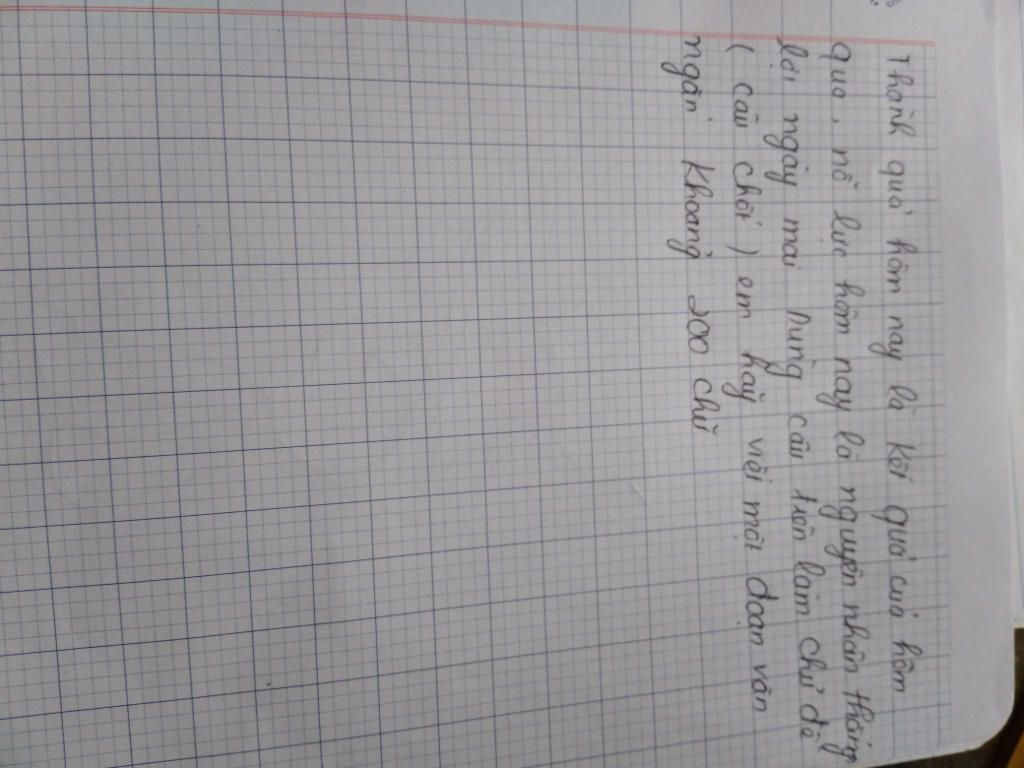 Thành quả hôm nay là kết quả của hôm
qua, nỗ lực hôm nay là nguyên nhân thắng
lợi ngày mai Dùng câu trên làm chủ đề
( câu chốt ) em hãy viết một đoạn văn
ngắn khoảng 200 chữ